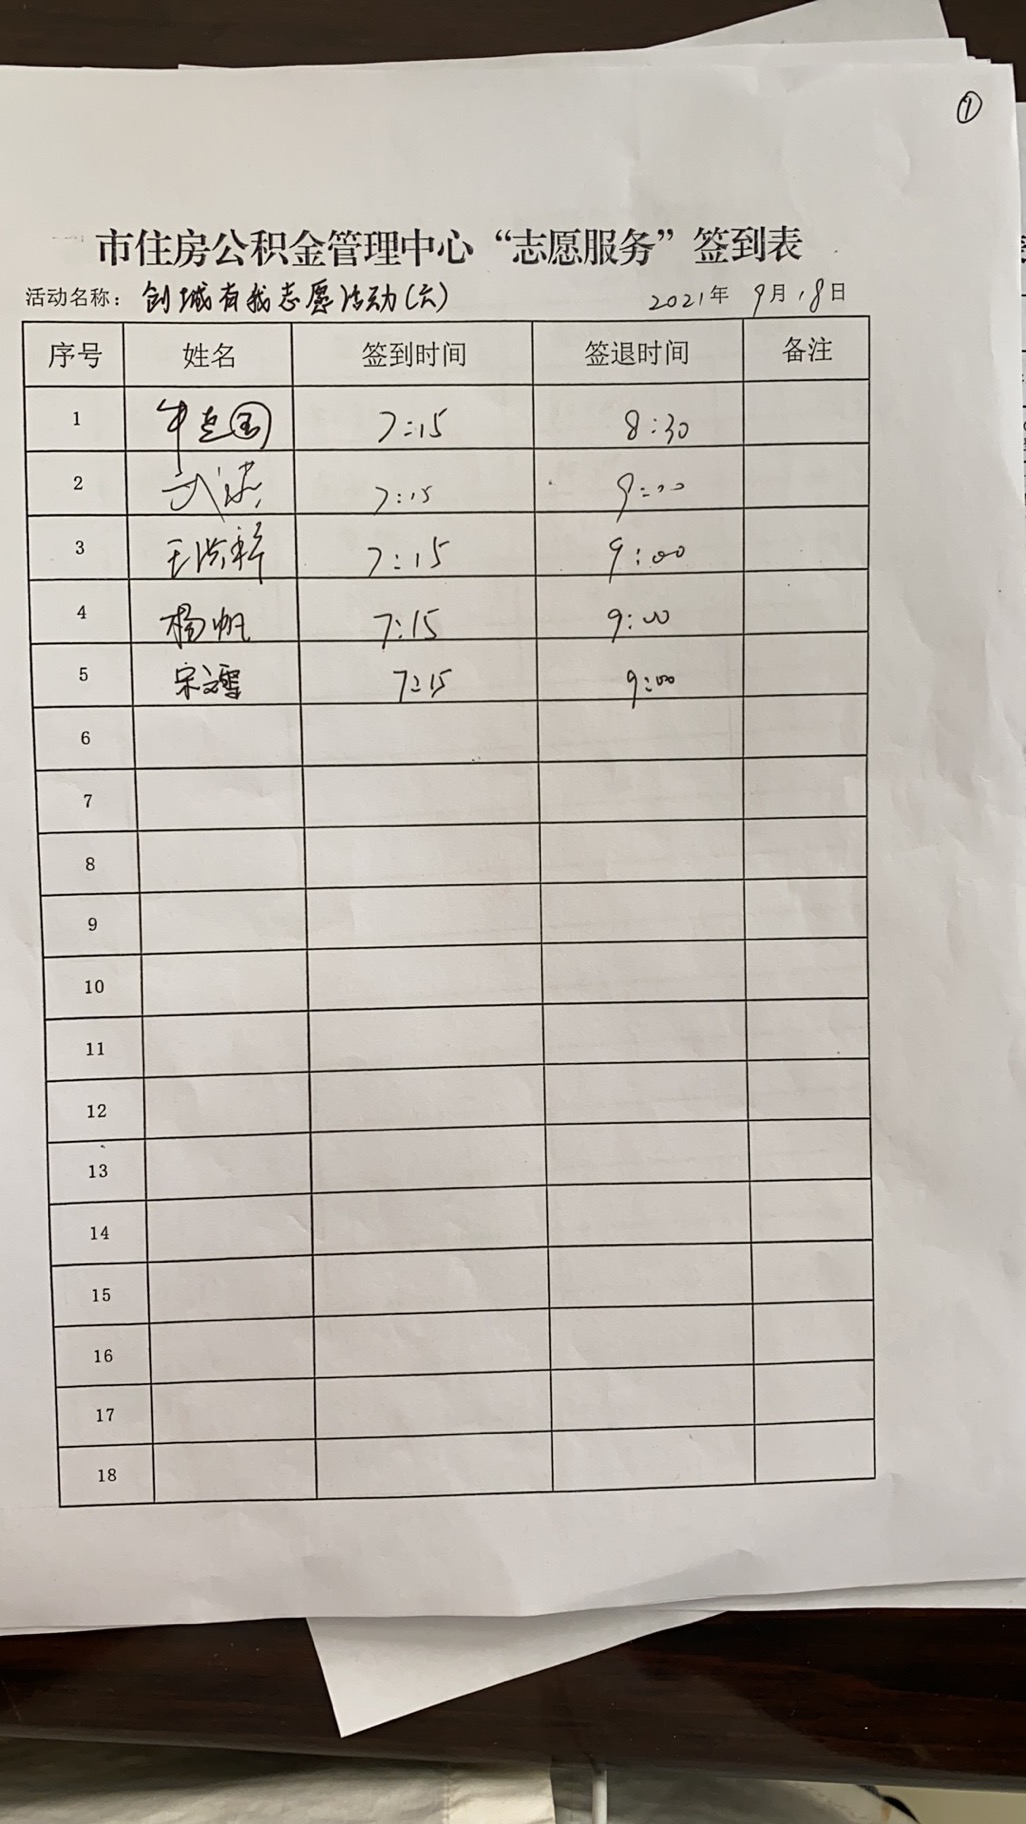 ①
市住房公积金管理中心“志愿服务”签到表
活动名称：创城有我志愿活动(六) 2021年 9月18日
序号 姓名 签到时间 签退时间 备注
1 7:15 8:30
2 7:15 9:00
3 7:15 9:00
4 杨帆 7:15 9:00
5 7:15 9:00
6
7
8
9
10
11
12
13
14
15
16
17
18